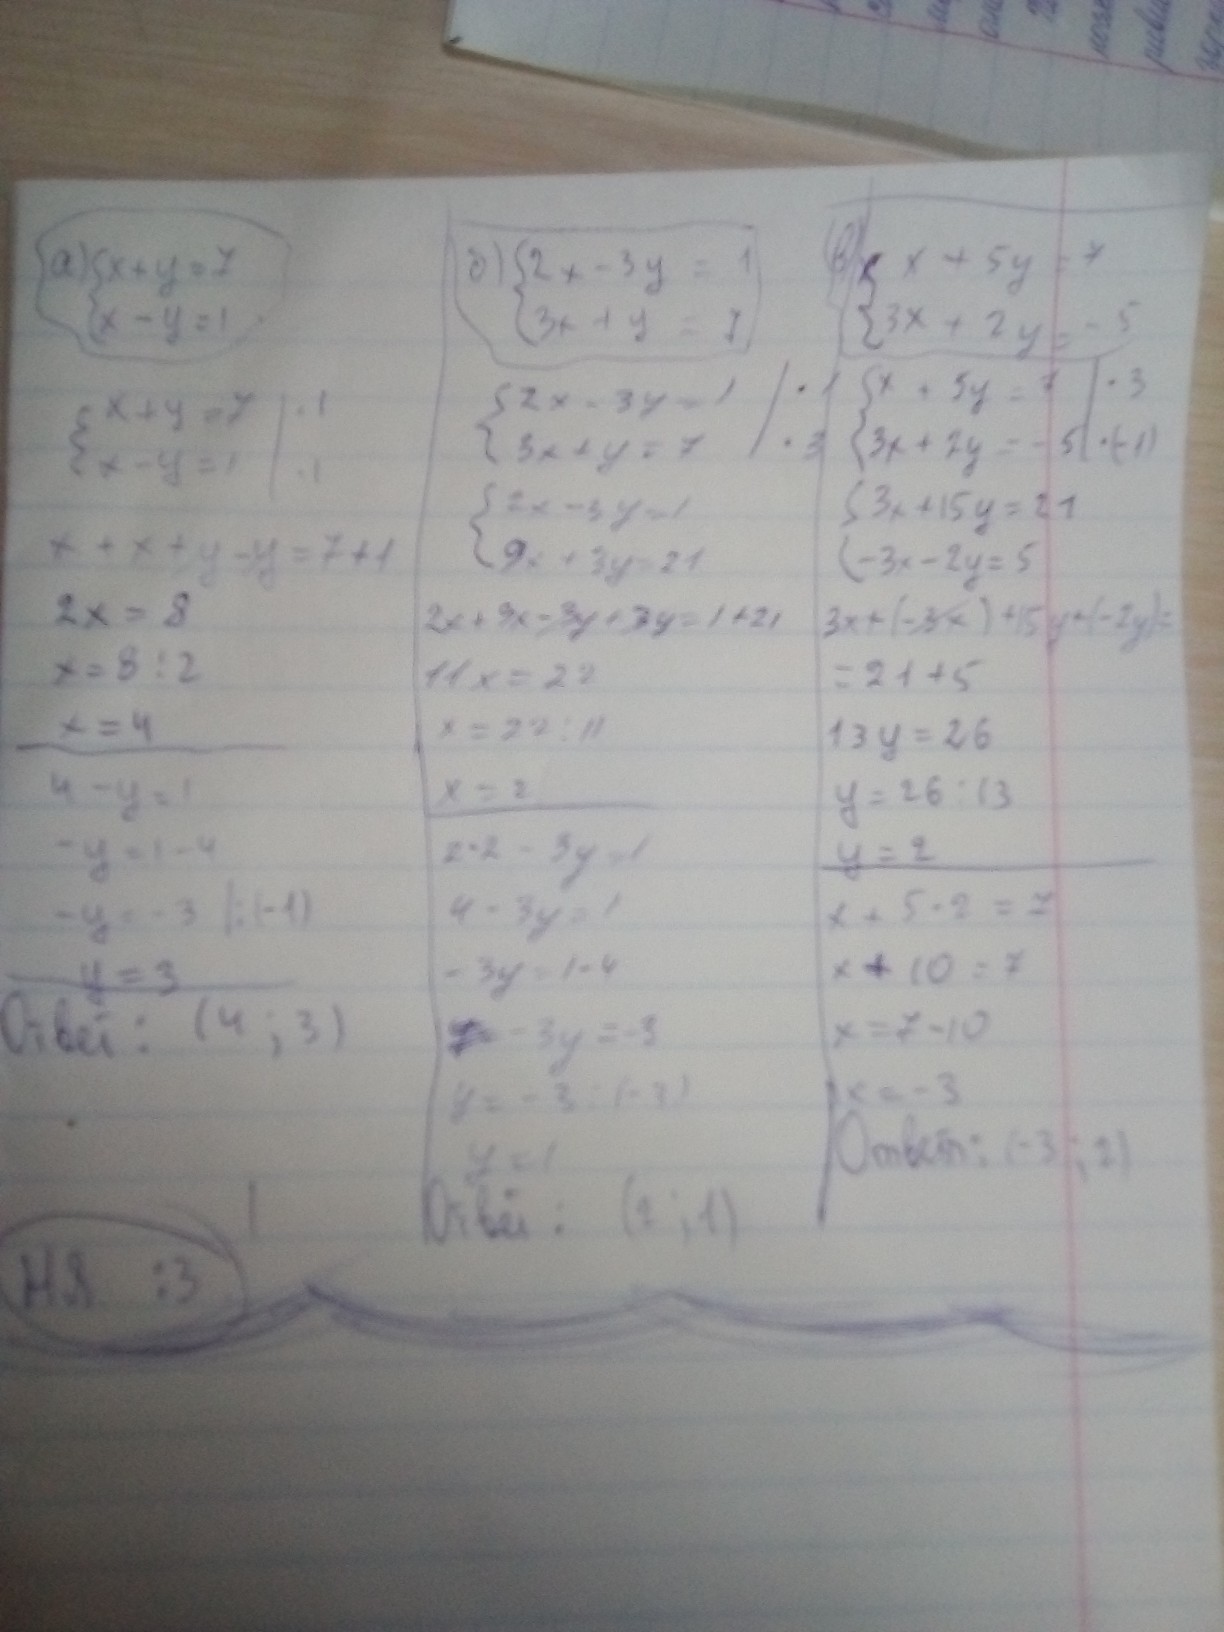 а) {x + y = 7
{x - y = 1
{x + y = 7 | · 1
{x - y = 1 | · 1
x + x + y - y = 7 + 1
2x = 8
x = 8 : 2
x = 4
4 - y = 1
- y = 1 - 4
- y = - 3 |: (-1)
y = 3
Ответ: (4 ; 3)
НЯ :3
б) {2x - 3y = 1
{3x + y = 7
{2x - 3y = 1 | · 1
{3x + y = 7 | · 3
{2x - 3y = 1
{9x + 3y = 21
2x + 9x - 3y + 3y = 1 + 21
11x = 22
x = 22 : 11
x = 2
2 · 2 - 3y = 1
4 - 3y = 1
- 3y = 1 - 4
- 3y = - 3
y = - 3 : (-3)
y = 1
Ответ: (2 ; 1)
в) { x + 5y = 7
{3x + 2y = - 5
{x + 5y = 7 | · 3
{3x + 2y = - 5 | · (-1)
{3x + 15y = 21
{-3x - 2y = 5
3x + (-3x) + 15y + (-2y) =
= 21 + 5
13y = 26
y = 26 : 13
y = 2
x + 5 · 2 = 7
x + 10 = 7
x = 7 - 10
x = - 3
Ответ: (-3 ; 2)